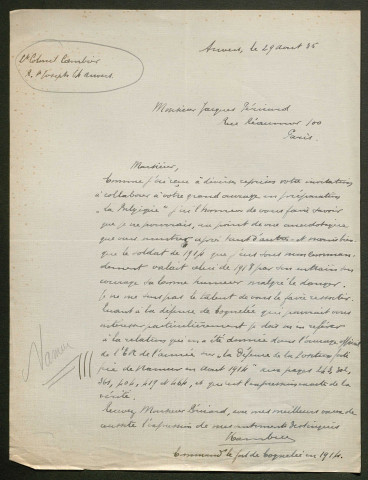 Anvers, le 29 août 35
Lt Colonel Cambier
R. St Joseph Anvers.
Monsieur Jacques Péricard
Rue Réaumur 100
Paris.
Monsieur,
Comme j'ai reçu à diverses reprises votre invitation
à collaborer à votre grand ouvrage en préparation
"la Belgique" j'ai l'honneur de vous faire savoir
que je ne pourrais, au point de vue anecdotique,
que vous montrer après tant d'autres
que le soldat de 1914 que j'eus sous mon comman-
dement valait celui de 1918 par son entrain son
courage sa bonne humeur malgré le danger.
Je ne me sens pas le talent de vous le faire ressortir.
Quant à la défense de Cognelée qui pourrait vous
intéresser particulièrement je dois m'en référer
à la relation qui en a été donnée dans l'ouvrage officiel
de l'E.M. de l'armée "La Défense de la Position forti-
fiée de Namur en août 1914" aux pages
et qui est l'expression exacte de la
vérité.
Namur
Veuillez, Monsieur Péricard, avec mes meilleurs vœux de
l'expression de mes sentiments distingués
Cambier
Commandt le fort de Cognelée en 1914.